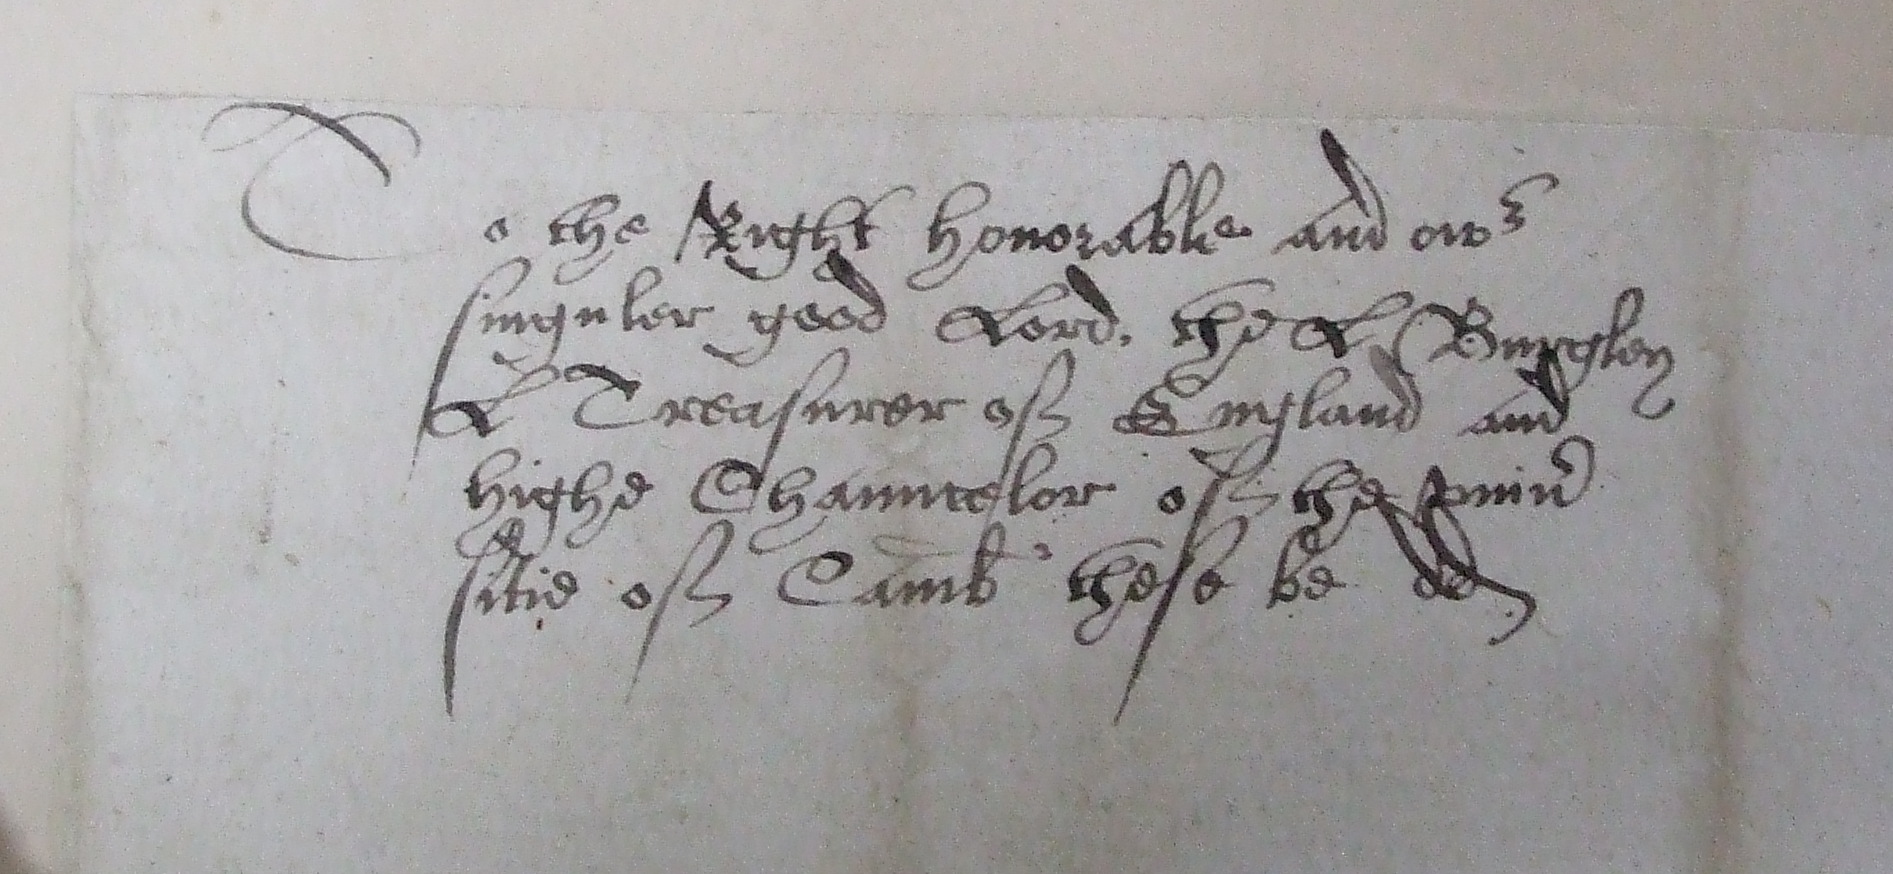 To the Right honorable and owr
singuler good Lord, the L Burgley
L Treasurer of England and
highe Chauncelor of the vniu
sitie of Camb these be dd